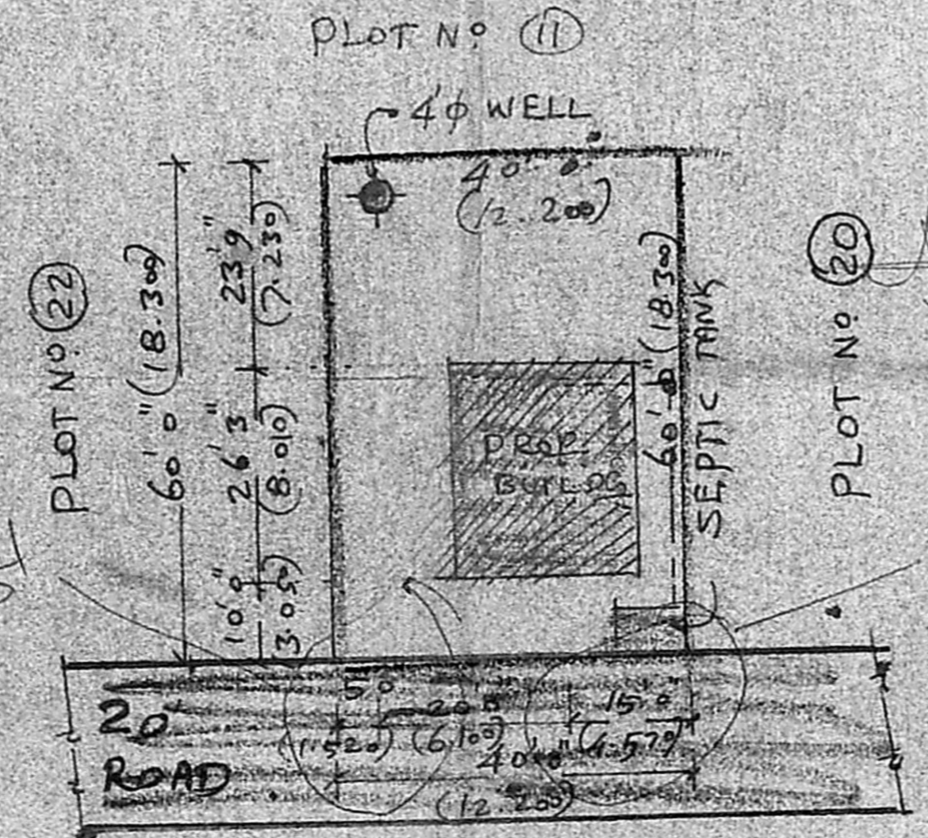 PLOT Nº 11
4'φ WELL
40'-0"
(12.200)
PLOT Nº 22
60'0" (18.300)
23'9"
(7.230)
26'3"
(8.010)
10'0"
3.05
60'-0" (18.300)
SEPTIC TANK
PLOT Nº 20
PROP.
BUILDG
20'
ROAD
5'0
20'0"
15'0"
(1.520) (6.100) (4.579)
40'0"
(12.200)